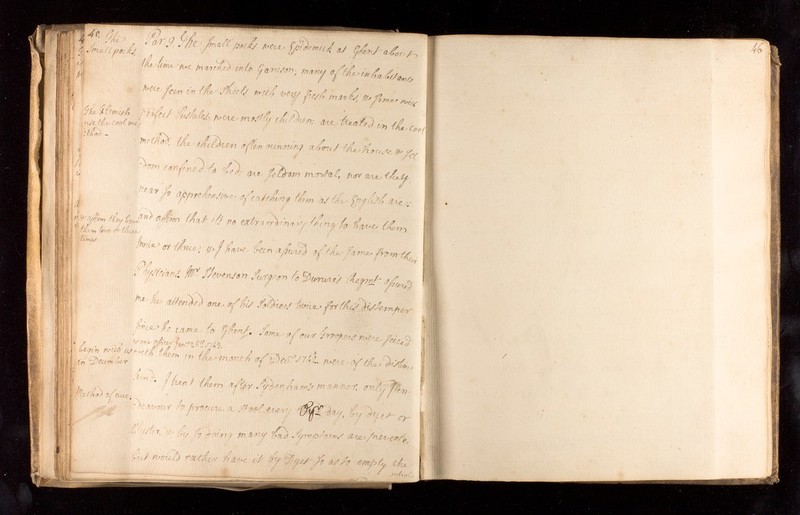 40. The
Small pocks
Par. 9. The small pocks were Epidemick at Ghent about
the time we marched into Garison; many of the inhabitants
were seen in the streets with very fresh marks, &
The Flemish
use the cool me
thod.
perfect Pustules; were mostly children: are treated in the cool
method, the children often running about the house, & Sel
dom confined to bed; are Seldom mortal, nor are they
near so apprehensive of catching them as the English are;
affirm they have
them two or three
times
and affirm that its no extraordinary thing to have them
twice or thrice; & I have been assured of the same from their
Physicians. Mr. Stevenson Surgeon to Regmt. assured
me he attended one of his Soldiers twice for this distemper
since he came to Ghent. Some of our troopers were seized
begin with us
in December
with them in the month of Decr. 1742 were of the distinct
kind. I treat them after Sydenhams manner, only I en
Method of cure.
deavour to procure a stool every day, by dyet or
Clyster, & by so doing many bad Symptoms are prevented.
but would rather have it by Dyet so as to empty the
46